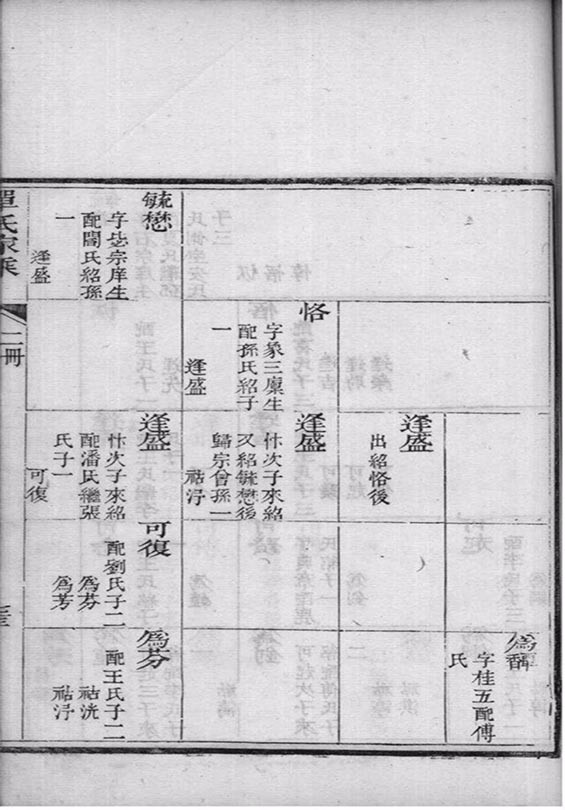 爲馞
字桂五配傅
氏
逢盛
出紹恪後
恪
字象三廩生
配孫氏紹子
一
逢盛
逢盛
忭次子來紹
又紹毓懋後
歸宗曾孫一
祐浡
毓懋
字岳宗庠生
配閻氏紹孫
一
逢盛
逢盛
忭次子來紹
配潘氏繼張
氏子一
可復
可復
配劉氏子二
爲芬
爲芳
爲芬
配王氏子二
祐洸
祐浡
單氏家乘
二冊